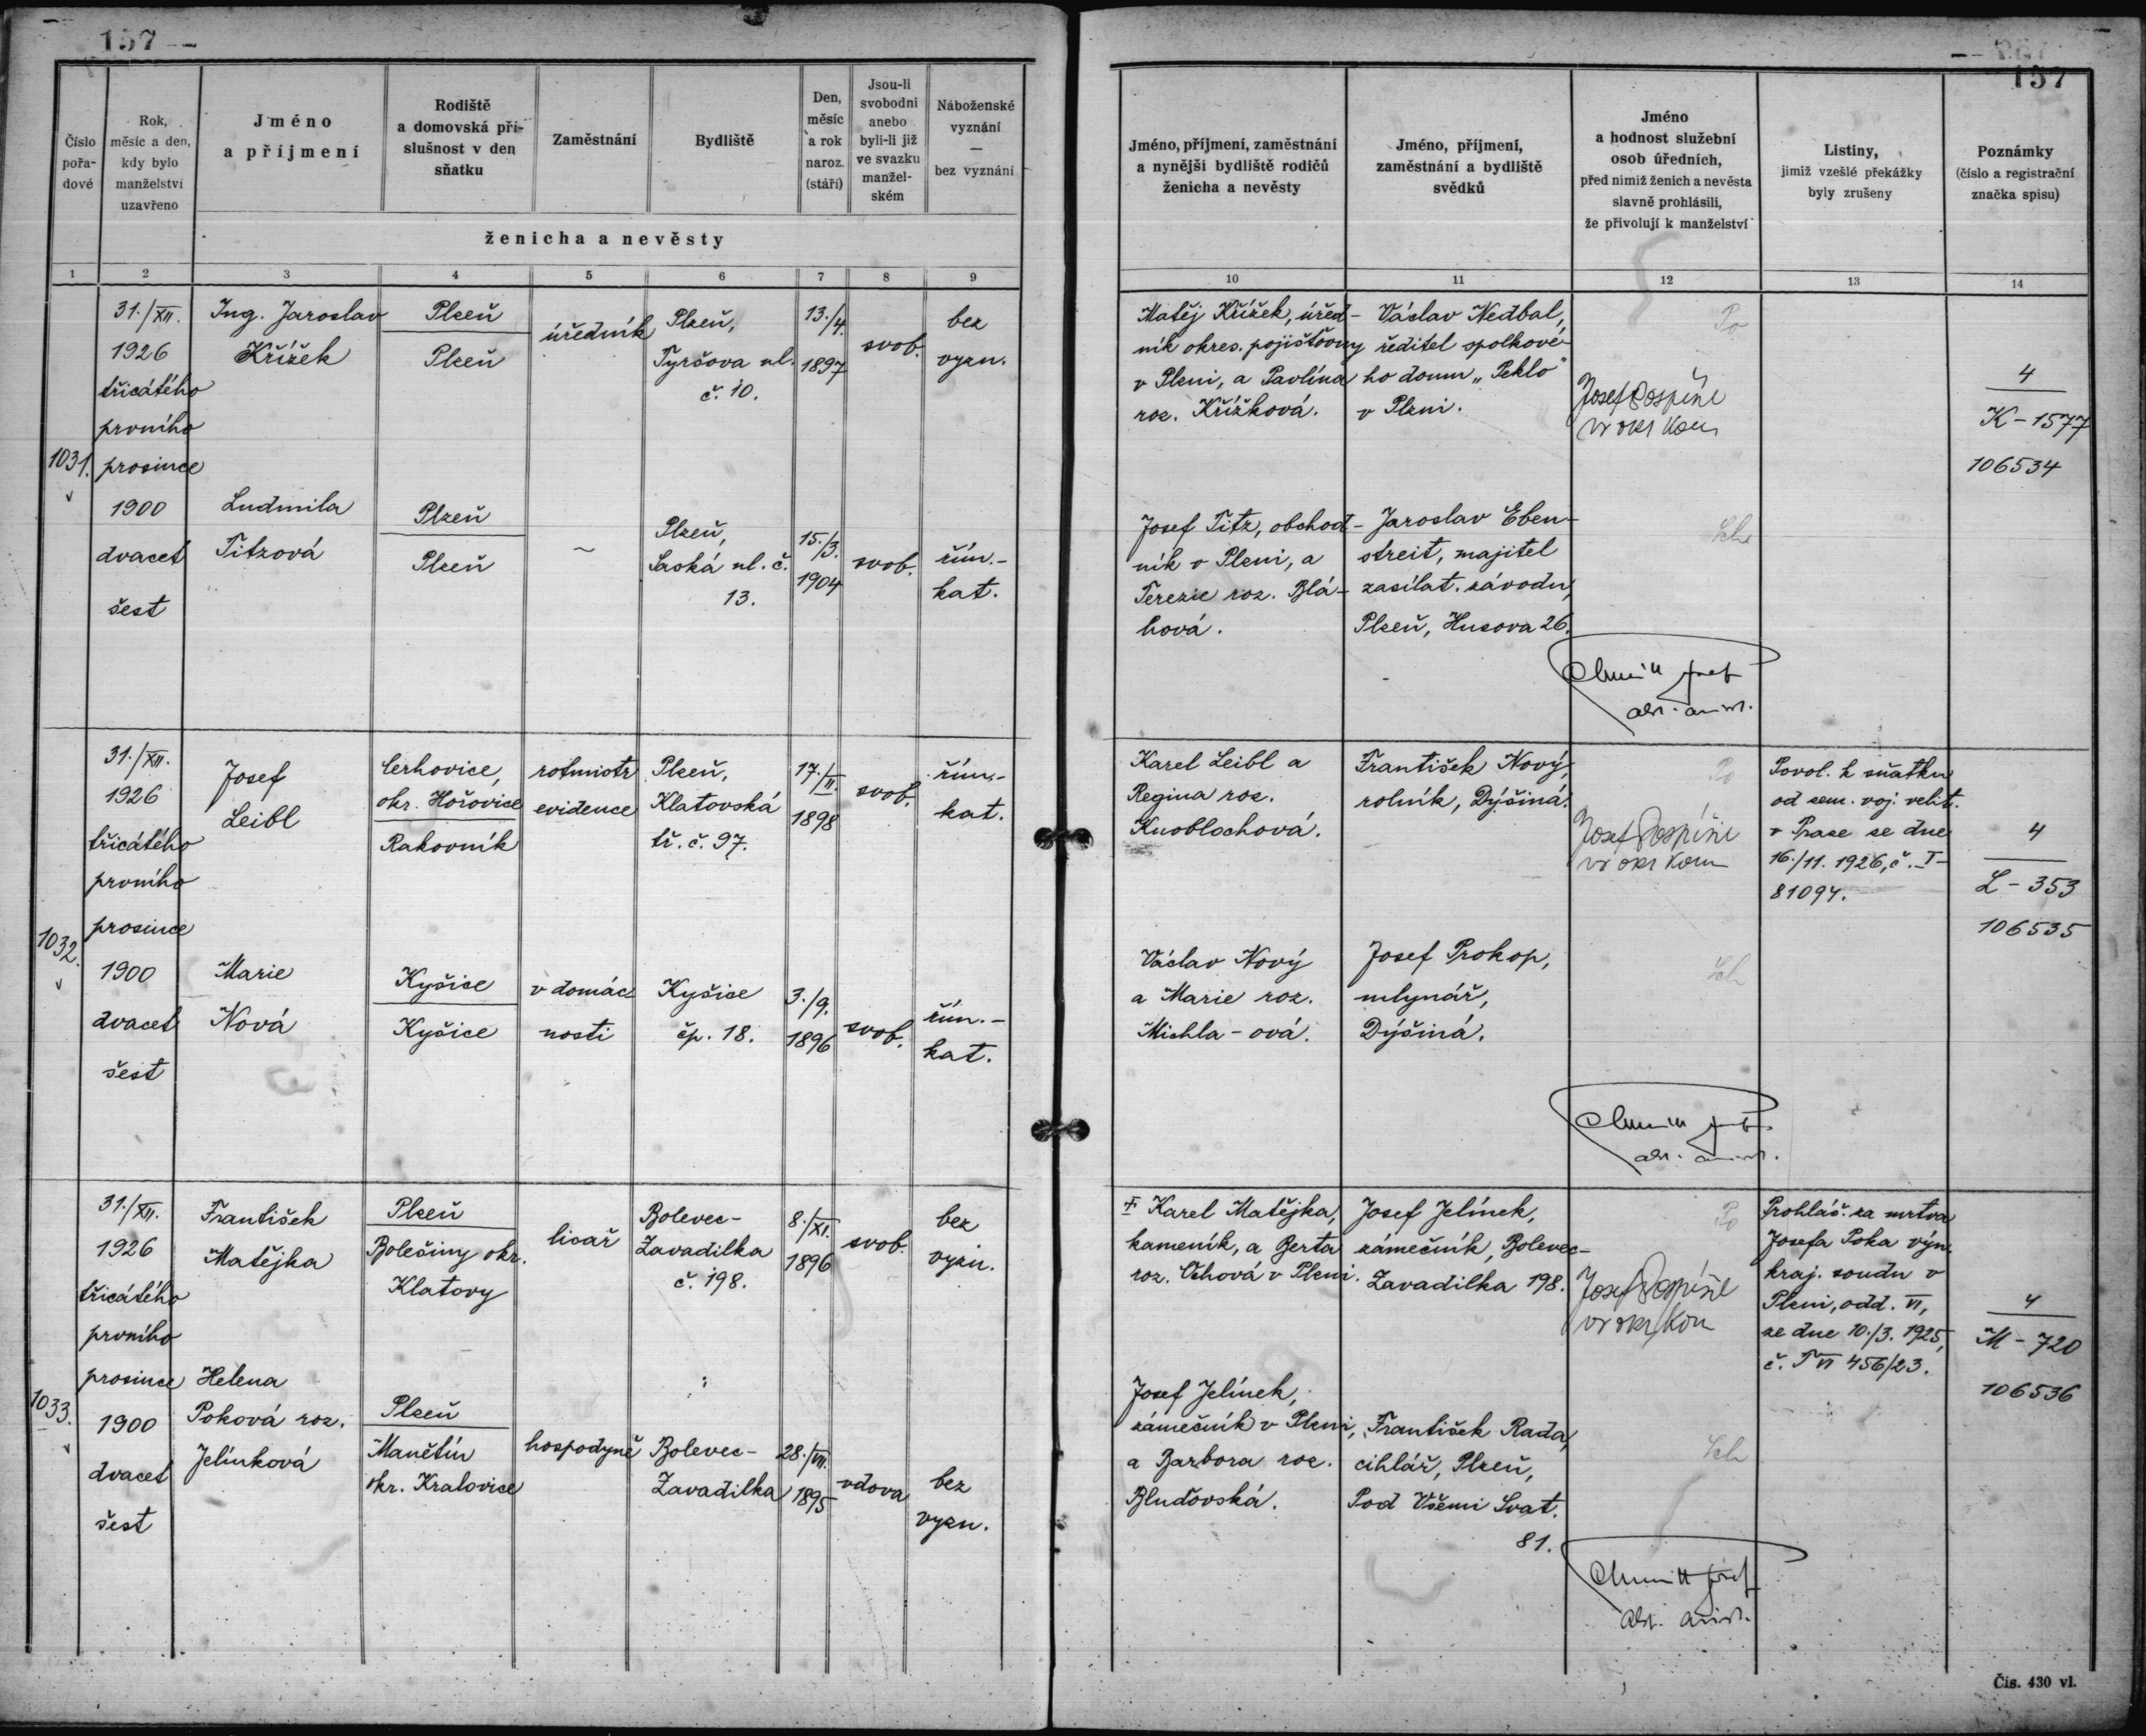 157
157
Číslo pořadové
Rok, měsíc a den, kdy bylo manželství uzavřeno
Jméno a příjmení
Rodiště a domovská příslušnost v den sňatku
Zaměstnání
Bydliště
Den, měsíc a rok naroz. (stáří)
Jsou-li svobodni anebo byli-li již ve svazku manželském
Náboženské vyznání — bez vyznání
ženicha a nevěsty
Jméno, příjmení, zaměstnání a nynější bydliště rodičů ženicha a nevěsty
Jméno, příjmení, zaměstnání a bydliště svědků
Jméno a hodnost služební osob úředních, před nimiž ženich a nevěsta slavně prohlásili, že přivolují k manželství
Listiny, jimiž vzešlé překážky byly zrušeny
Poznámky (číslo a registrační značka spisu)
1 2 3 4 5 6 7 8 9 10 11 12 13 14
1031.
31./XII.
1926
třicátého
prvního
prosince
1900
dvacet
šest
Ing. Jaroslav
Křížek
Plzeň
Plzeň
úředník
Plzeň,
Tyršova ul.
č. 10.
13./4.
1897
svob.
bez
vyzn.
Matěj Křížek, úřed-
ník okres. pojišťovny
v Plzni, a Pavlína
roz. Křížková.
Václav Nedbal,
ředitel spolkové-
ho domu „Peklo"
v Plzni.
Po
Josef Pospíšil
4
K-1577
106534
Ludmila
Titzová
Plzeň
Plzeň
~
Plzeň,
Saská ul. č.
13.
15./3.
1904
svob.
řím.-
kat.
Josef Titz, obchod-
ník v Plzni, a
Terezie roz. Blá-
hová.
Jaroslav Eben-
streit, majitel
zasílat. závodu,
Plzeň, Husova 26.
Sch
1032.
31./XII.
1926
třicátého
prvního
prosince
1900
dvacet
šest
Josef
Leibl
Cerhovice,
okr. Hořovice
Rakovník
rotmistr
evidence
Plzeň,
Klatovská
tř. č. 97.
17./II.
1898
svob.
řím.-
kat.
Karel Leibl a
Regina roz.
Knoblochová.
František Nový,
rolník, Dýšiná.
Po
Josef Pospíšil
Povol. k sňatku
od zem. voj. velit.
v Praze ze dne
16./11. 1926, č. I-
81094.
4
L-353
106535
Marie
Nová
Kyšice
Kyšice
v domác-
nosti
Kyšice
čp. 18.
3./9.
1896
svob.
řím.-
kat.
Václav Nový
a Marie roz.
Michla-ová.
Josef Prokop,
mlynář,
Dýšiná.
Sch
1033.
31./XII.
1926
třicátého
prvního
prosince
1900
dvacet
šest
František
Matějka
Plzeň
Bolešiny okr.
Klatovy
lisař
Bolevec-
Zavadilka
č. 198.
8./XI.
1896
svob.
bez
vyzn.
† Karel Matějka,
kameník, a Berta
roz. Ochová v Plzni.
Josef Jelínek,
zámečník, Bolevec-
Zavadilka 198.
Po
Josef Pospíšil
Prohláš. za mrtva
Josefa Poka výn.
kraj. soudu v
Plzni, odd. VI,
ze dne 10./3. 1925,
č. T VI 456/23.
4
M-720
106536
Helena
Poková roz.
Jelínková
Plzeň
Manětín
okr. Kralovice
hospodyně
Bolevec-
Zavadilka
28./VII.
1895
vdova
bez
vyzn.
Josef Jelínek,
zámečník v Plzni,
a Barbora roz.
Bluďovská.
František Rada,
cihlář, Plzeň,
Pod Všemi Svat.
81.
Sch
Čís. 430 vl.